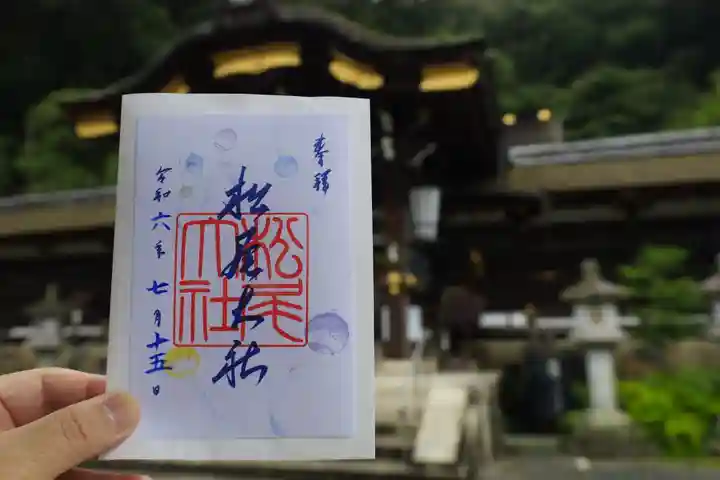 奉拝
松尾大社
松尾大社
令和六年七月十五日